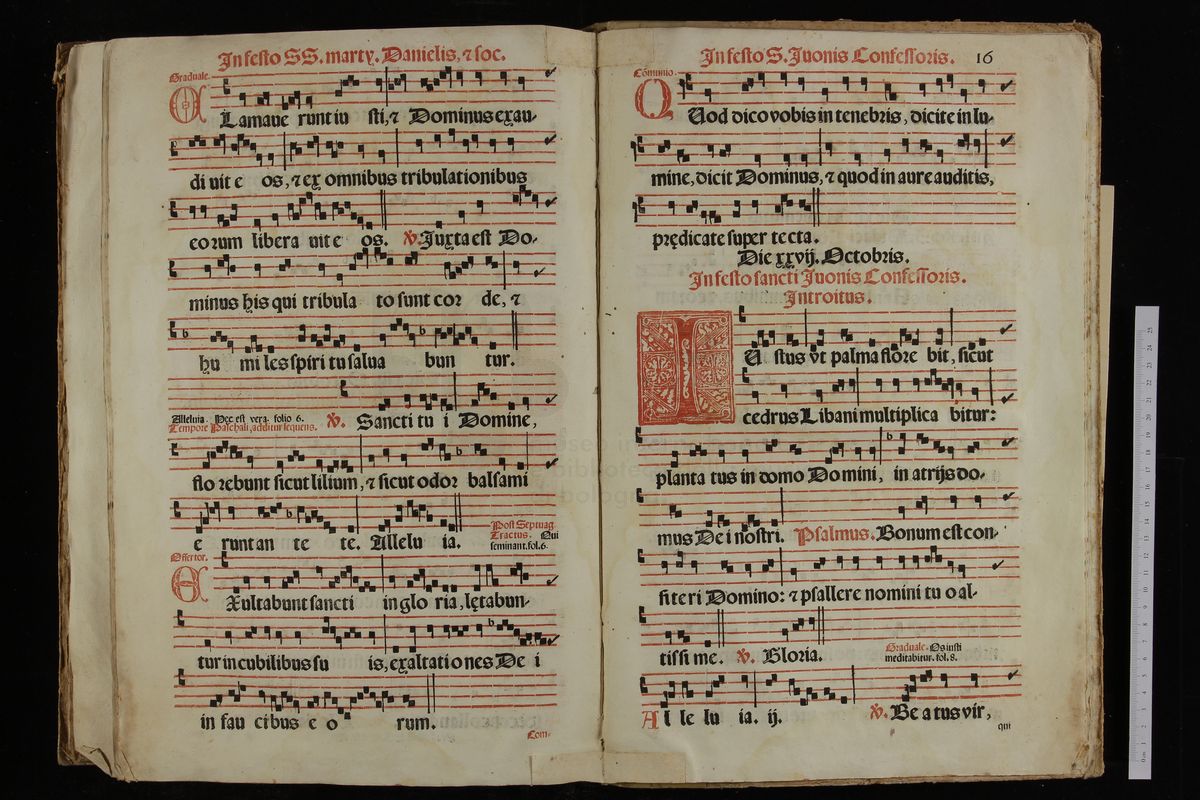 In festo SS. marty. Danielis, ⁊ soc.
Graduale.
CLamaue runt iu sti, ⁊ Dominus exau-
di uit e os, ⁊ ex omnibus tribulationibus
eorum libera uit e os. ℣. Juxta est Do-
minus his qui tribula to sunt cor de, ⁊
hu mi les spiri tu salua bun tur.
Alleluia. Nec est vera. folio 6.
Tempore Paschali, additur sequens. ℣. Sancti tu i Domine,
flo rebunt sicut lilium, ⁊ sicut odor balsami
Post Septuag
Tractus. Qui
seminant. fol. 6.
e runt an te te. Allelu ia.
Offertor.
EXultabunt sancti in glo ria, lętabun-
tur in cubilibus su is, exaltationes De i
in fau cibus e o rum.
Com-
In festo S. Juonis Confessoris. 16
Cõmunio.
QUod dico vobis in tenebris, dicite in lu-
mine, dicit Dominus, ⁊ quod in aure auditis,
prędicate super tecta.
Die xxvij. Octobris.
In festo sancti Juonis Confessoris.
Introitus.
IUstus vt palma flore bit, sicut
cedrus Libani multiplica bitur:
planta tus in domo Domini, in atrijs do-
mus De i nostri. Psalmus. Bonum est con-
fiteri Domino: ⁊ psallere nomini tu o al-
tissi me. ℣. Gloria.
Graduale. Os iusti
meditabitur. fol. 8.
Al le lu ia. ij. ℣. Be a tus vir,
qui